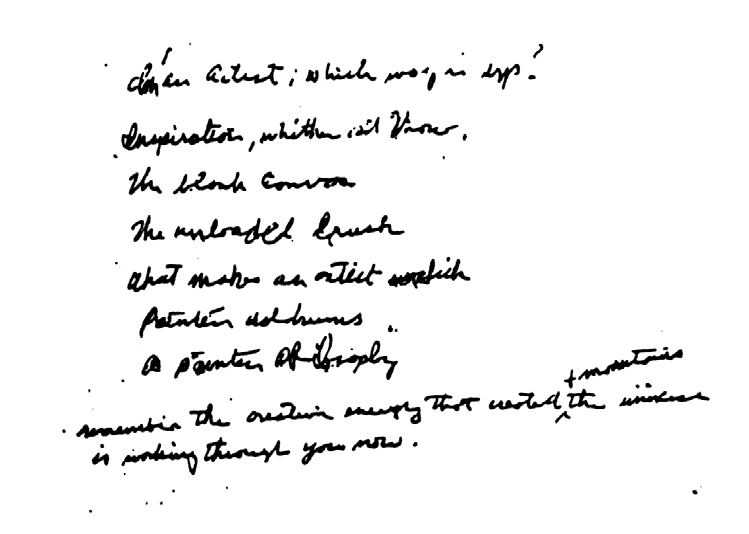 an artist; which way is up?
Inspiration, whither
The blank canvas
The unloaded brush
what makes an artist tick
Painter doldrums
a painter
+ mountains
remember the creative energy that created the universe
is working through you now.